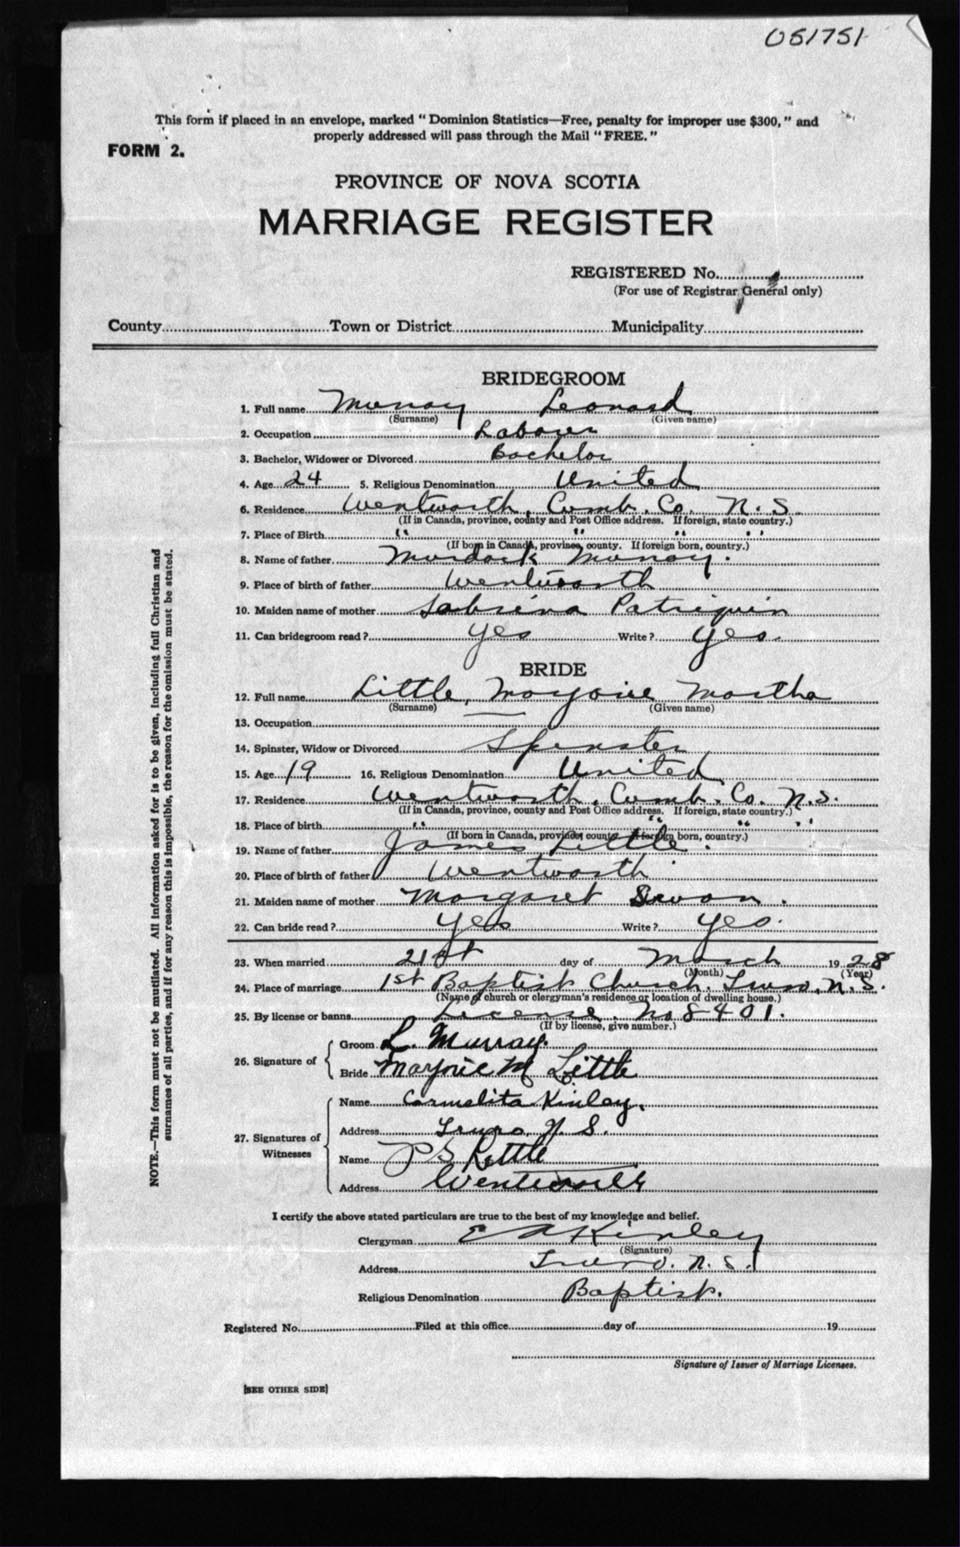 051751
This form if placed in an envelope, marked "Dominion Statistics—Free, penalty for improper use $300," and
properly addressed will pass through the Mail "FREE."
FORM 2.
PROVINCE OF NOVA SCOTIA
MARRIAGE REGISTER
REGISTERED No.
(For use of Registrar General only)
County Town or District Municipality
BRIDEGROOM
1. Full name Murray Leonard
(Surname) (Given name)
2. Occupation Laborer
3. Bachelor, Widower or Divorced Bachelor
4. Age 24 5. Religious Denomination United
6. Residence Wentworth, Cumb. Co. N. S.
(If in Canada, province, county and Post Office address. If foreign, state country.)
7. Place of Birth " " " "
(If born in Canada, province, county. If foreign born, country.)
8. Name of father Murdock Murray.
9. Place of birth of father Wentworth
10. Maiden name of mother Sabrina Patriquin
11. Can bridegroom read? yes Write? yes.
BRIDE
12. Full name Little, Marjorie Martha
(Surname) (Given name)
13. Occupation —
14. Spinster, Widow or Divorced Spinster
15. Age 19 16. Religious Denomination United
17. Residence Wentworth, Cumb. Co. N.S.
(If in Canada, province, county and Post Office address. If foreign, state country.)
18. Place of birth " " " "
(If born in Canada, province, county. If foreign born, country.)
19. Name of father James Little.
20. Place of birth of father Wentworth
21. Maiden name of mother Margaret Swan.
22. Can bride read? yes Write? yes.
23. When married 21st day of March 1928
(Month) (Year)
24. Place of marriage 1st Baptist Church, Truro, N.S.
(Name of church or clergyman's residence or location of dwelling house.)
25. By license or banns License. No 8401.
(If by license, give number.)
26. Signature of
Groom L. Murray.
Bride Marjorie M Little
27. Signatures of Witnesses
Name Carmelita Kinley.
Address Truro N. S.
Name P S Little
Address Wentworth
I certify the above stated particulars are true to the best of my knowledge and belief.
Clergyman E A Kinley
(Signature)
Address Truro. N. S.
Religious Denomination Baptist.
Registered No. Filed at this office day of 19
Signature of Issuer of Marriage Licenses.
[SEE OTHER SIDE]
NOTE.—This form must not be mutilated. All information asked for is to be given, including full Christian and
surnames of all parties, and if for any reason this is impossible, the reason for the omission must be stated.